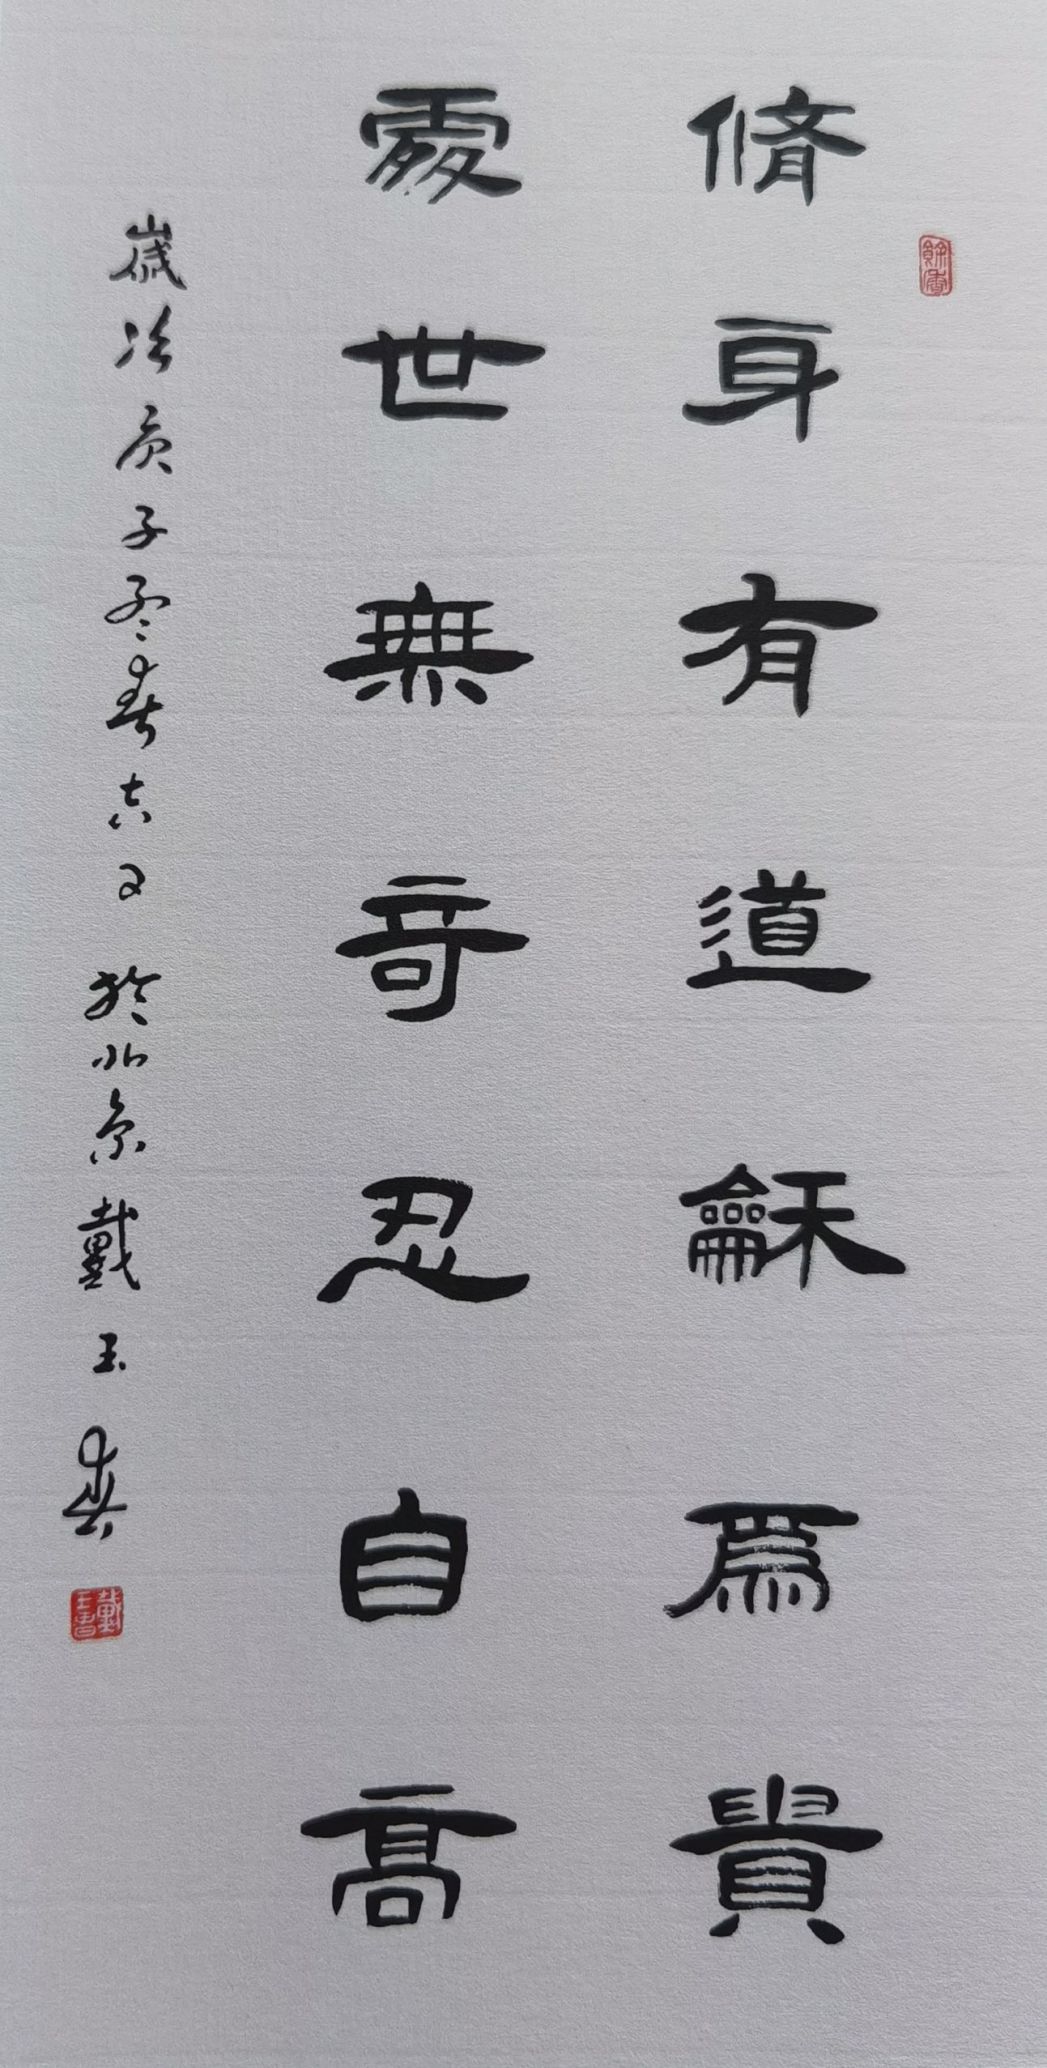 脩身有道龢爲貴
處世無奇忍自高
歲次庚子孟春 於北京戴玉